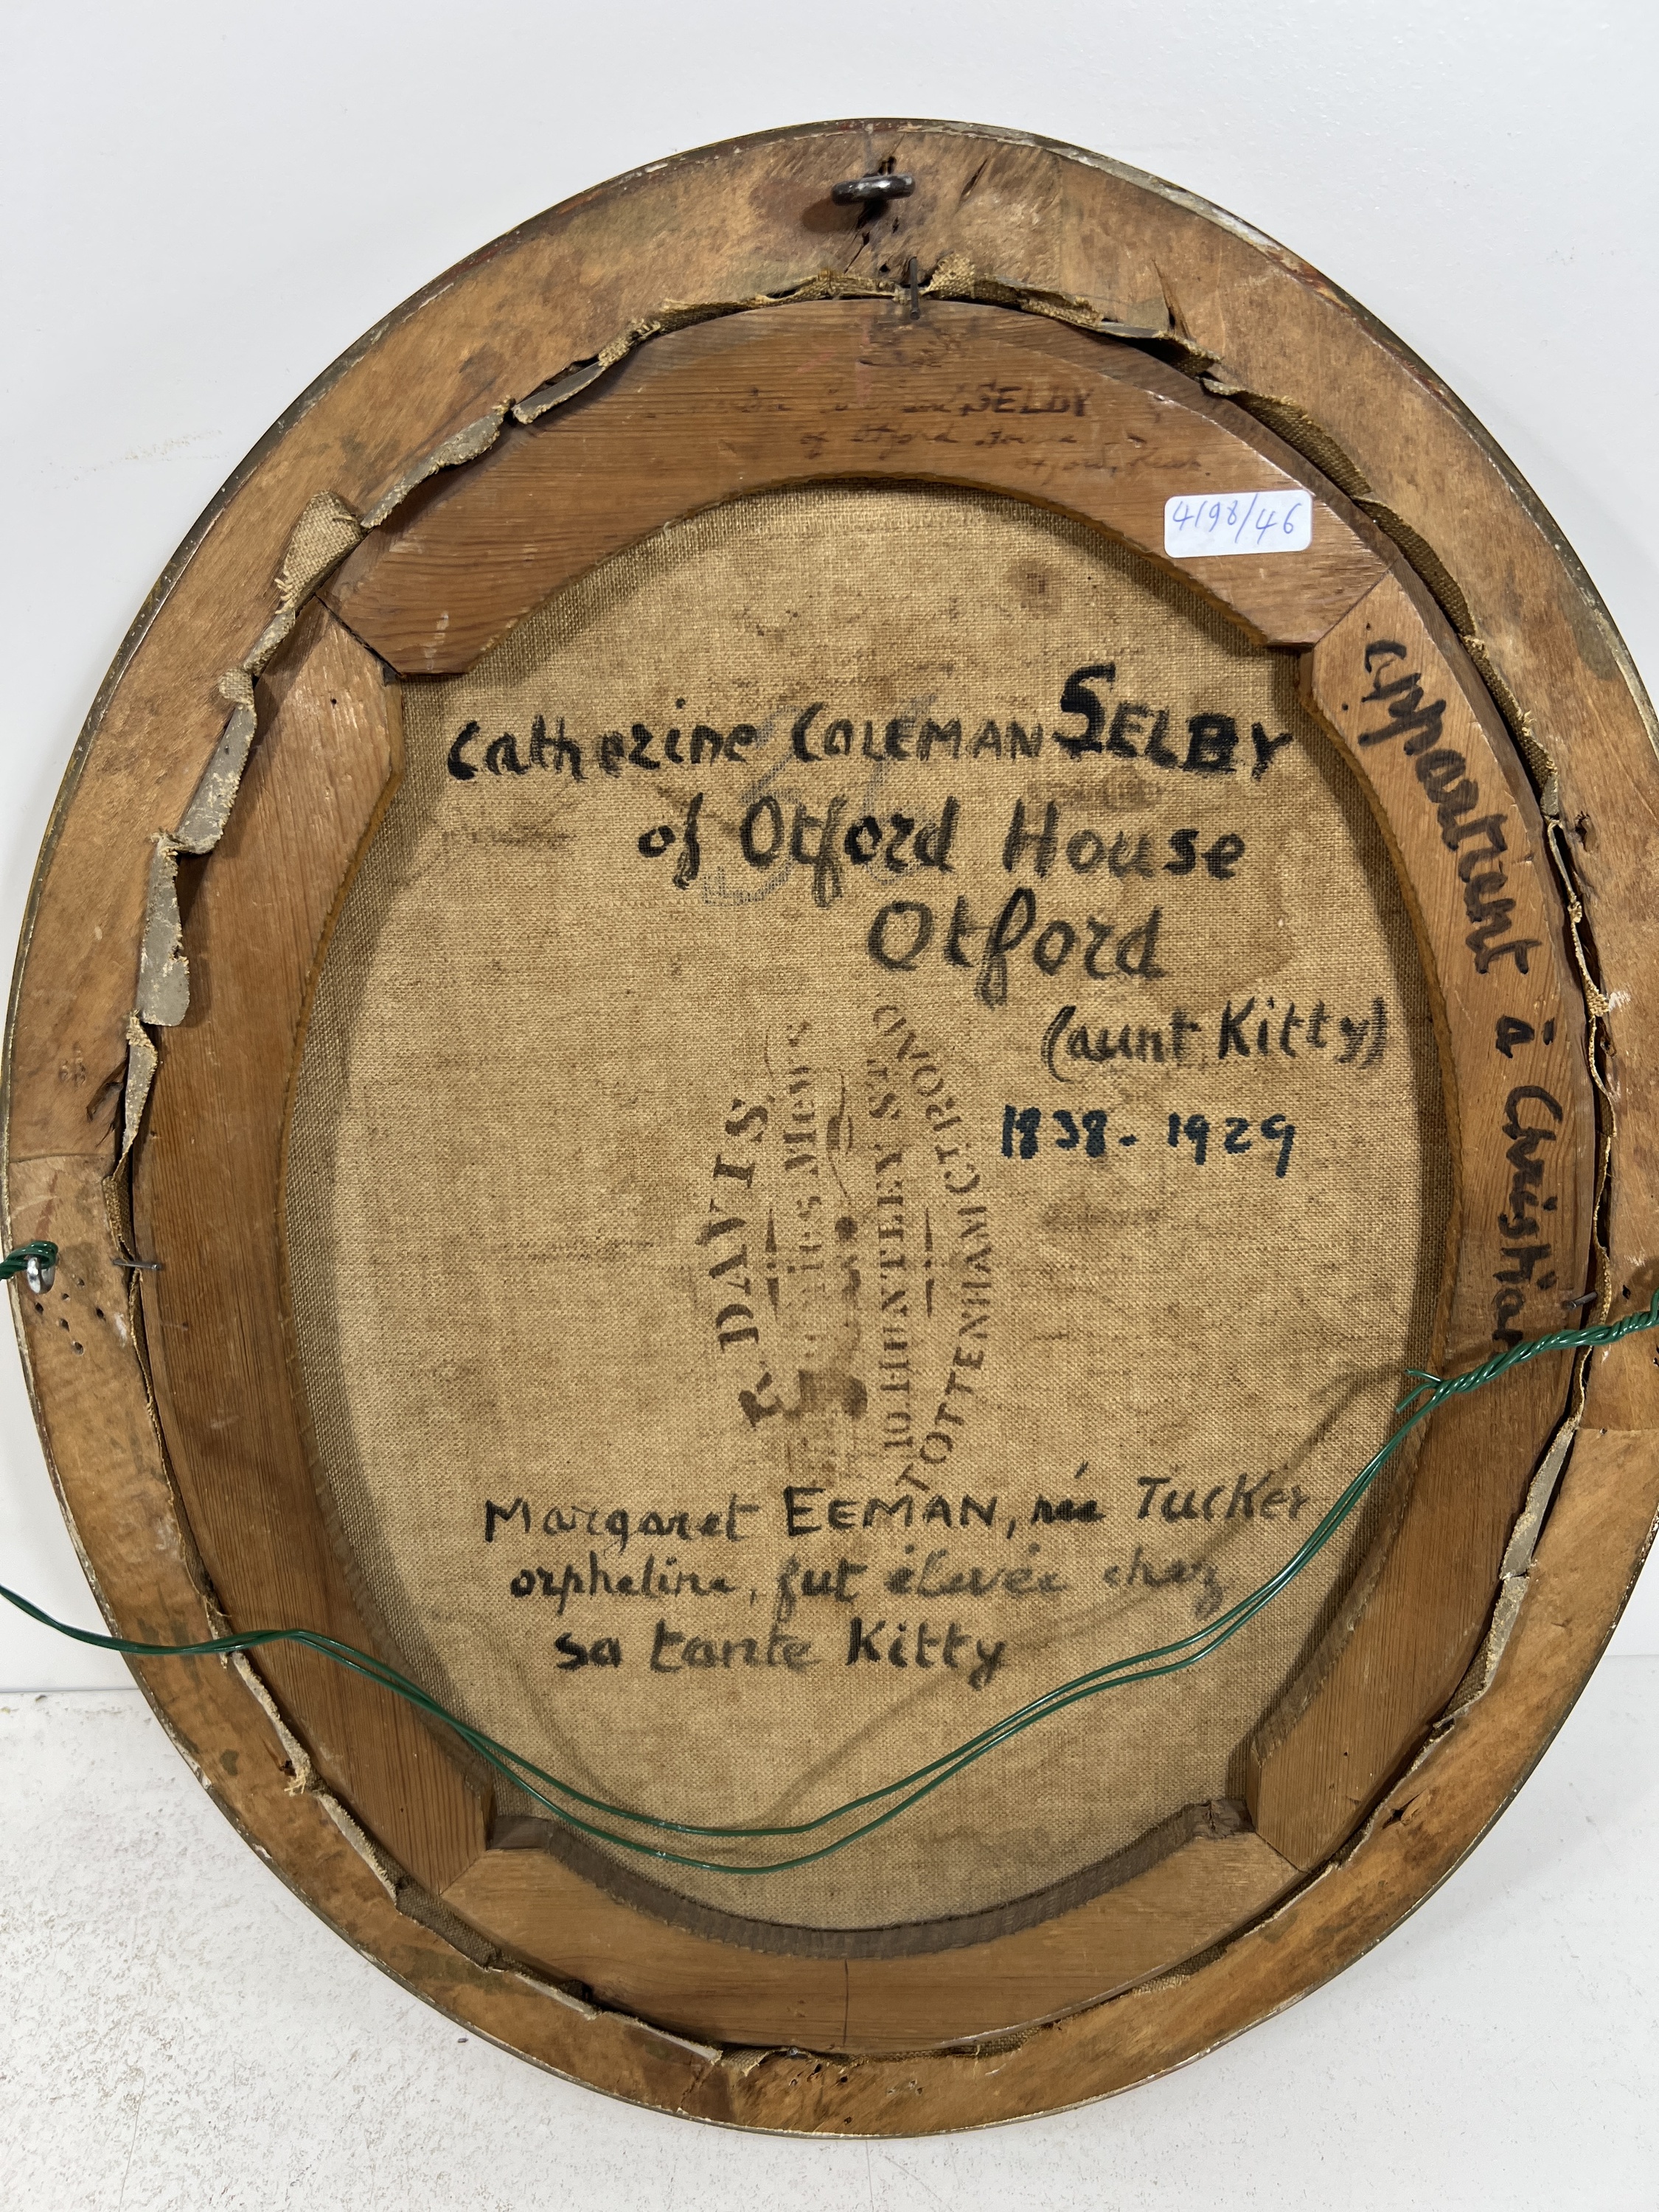 SELBY
of Otford House
4198/46
Catherine COLEMAN SELBY
of Otford House
Otford
(aunt Kitty)
1838 - 1929
appartient à Christian
DAVIS
Mews
10. HUNTLEY ST
TOTTENHAM CT ROAD
Margaret EEMAN, née Tucker
orpheline, fut élevée chez
sa tante Kitty